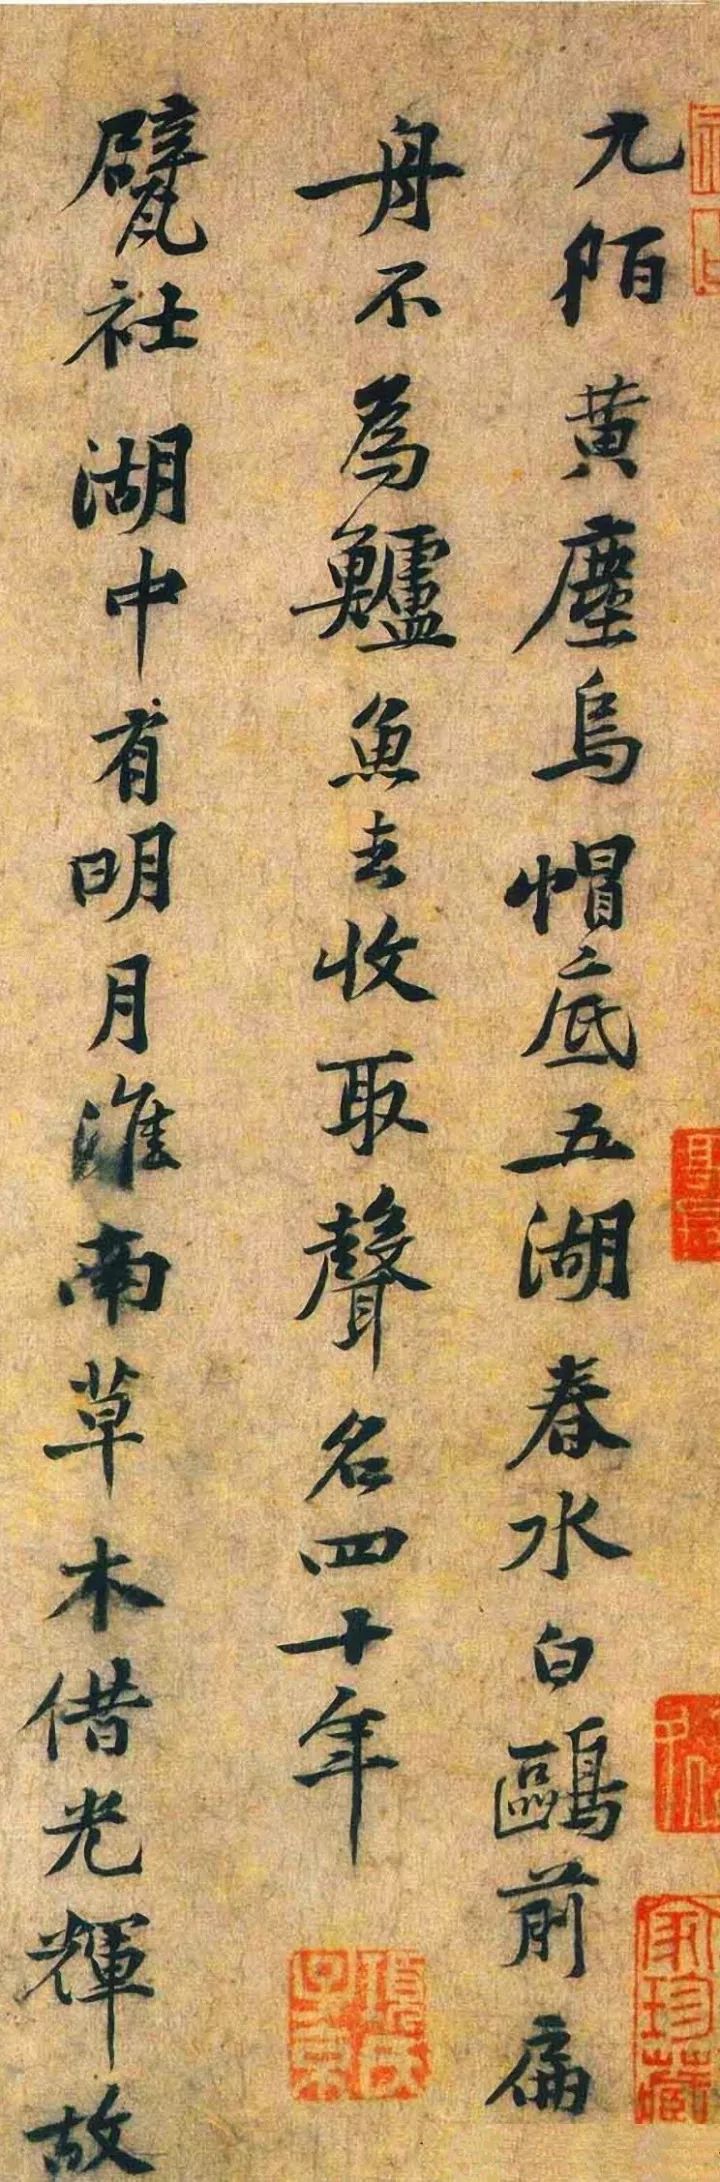 九陌黃塵烏帽底五湖春水白鷗前扁
舟不為鱸魚去收取聲名四十年
甓社湖中有明月淮南草木借光輝故
項氏子京
家珍藏